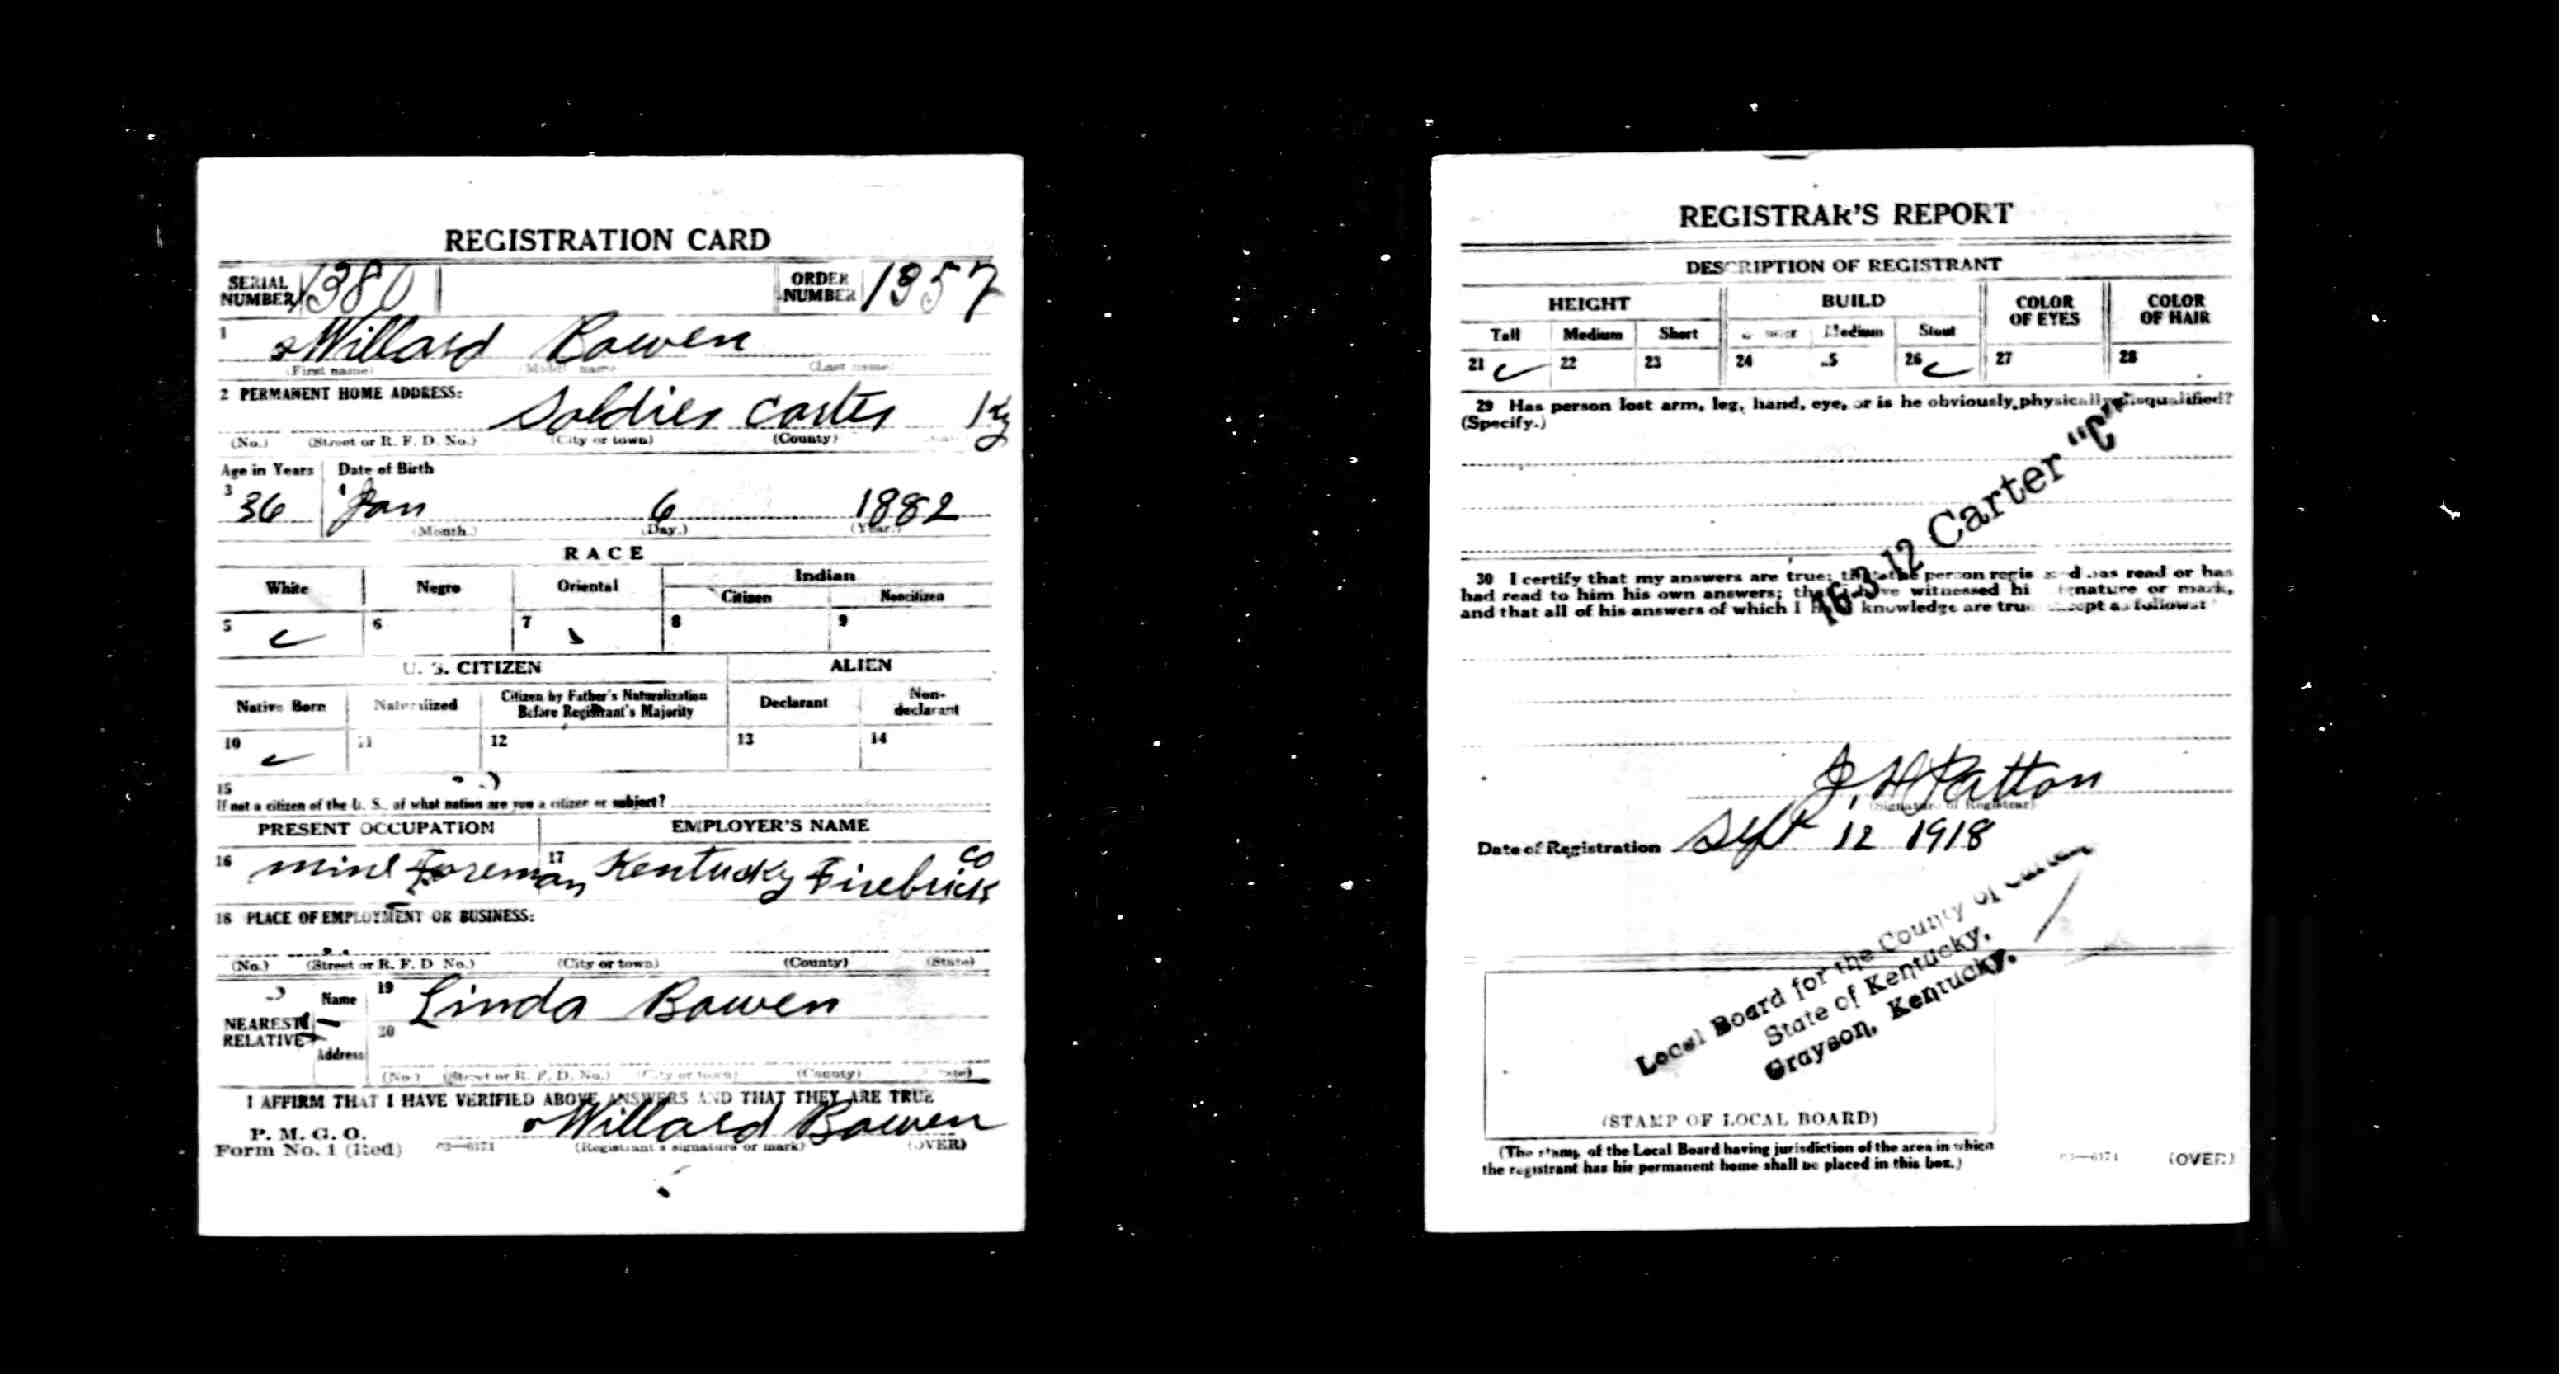 REGISTRATION CARD
SERIAL NUMBER 1380 ORDER NUMBER 1357
1 Willard Bowen
(First name) (Middle name) (Last name)
2 PERMANENT HOME ADDRESS:
Soldier Carter Ky
(No.) (Street or R. F. D. No.) (City or town) (County)
Age in Years Date of Birth
3 36 4 Jan 6 1882
(Month.) (Day.) (Year.)
RACE
White Negro Oriental Indian
Citizen Noncitizen
5 6 7 8 9
U. S. CITIZEN ALIEN
Native Born Naturalized Citizen by Father's Naturalization Before Registrant's Majority Declarant Non-declarant
10 11 12 13 14
15
If not a citizen of the U. S., of what nation are you a citizen or subject?
PRESENT OCCUPATION EMPLOYER'S NAME
16 mine Foreman 17 Kentucky Firebrick Co
18 PLACE OF EMPLOYMENT OR BUSINESS:
(No.) (Street or R. F. D. No.) (City or town) (County) (State)
NEAREST RELATIVE Name 19 Linda Bowen
Address 20
(No.) (Street or R. F. D. No.) (City or town) (County) (State)
I AFFIRM THAT I HAVE VERIFIED ABOVE ANSWERS AND THAT THEY ARE TRUE
P. M. G. O.
Form No. 1 (Red) Willard Bowen
(Registrant's signature or mark) (OVER)
REGISTRAR'S REPORT
DESCRIPTION OF REGISTRANT
HEIGHT BUILD COLOR OF EYES COLOR OF HAIR
Tall Medium Short Medium Stout
21 22 23 24 25 26 27 28
29 Has person lost arm, leg, hand, eye, or is he obviously physically disqualified?
(Specify.)
16-3-12 Carter "C"
30 I certify that my answers are true; that the person registered has read or has
had read to him his own answers; that I have witnessed his signature or mark,
and that all of his answers of which I have knowledge are true, except as follows:
J. H Patton
(Signature of Registrar)
Date of Registration Sept 12 1918
Local Board for the County of Carter
State of Kentucky,
Grayson, Kentucky.
(STAMP OF LOCAL BOARD)
(The stamp of the Local Board having jurisdiction of the area in which
the registrant has his permanent home shall be placed in this box.)
03—6171 (OVER)